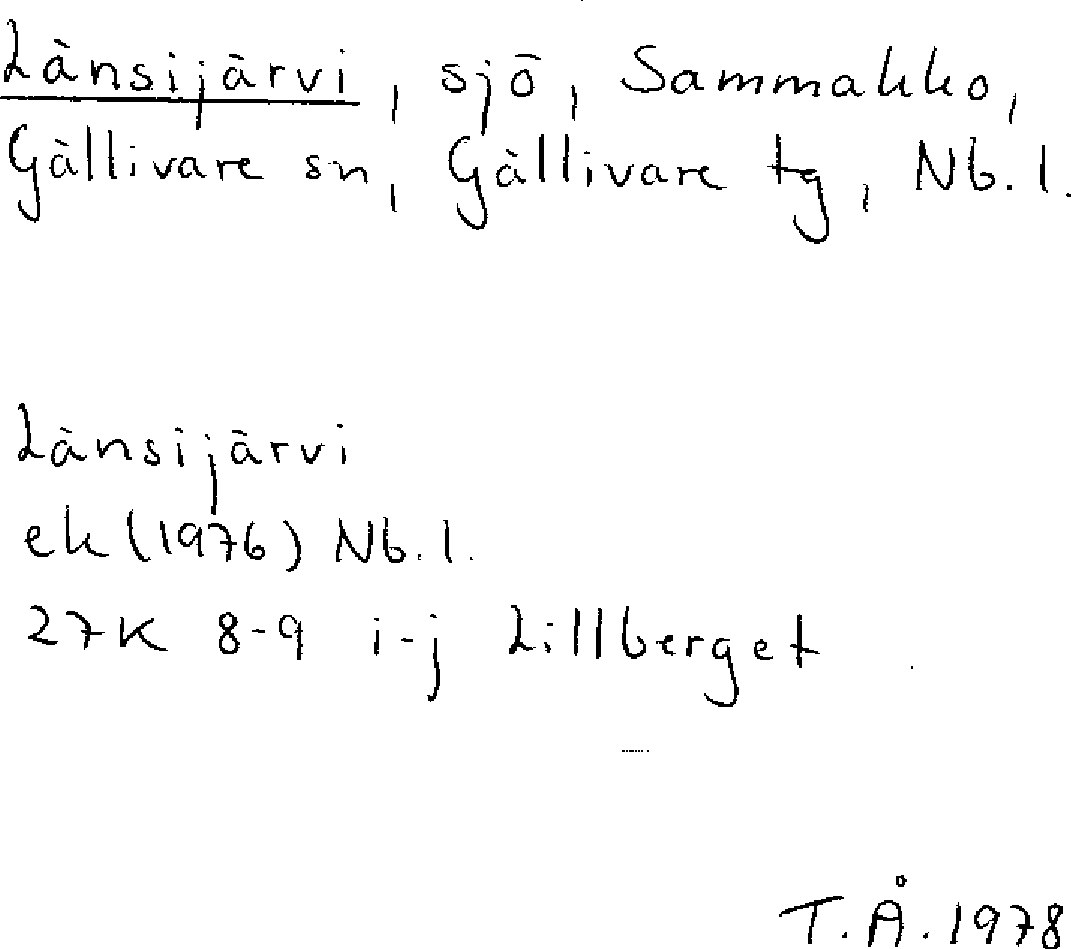 Länsijärvi, sjö, Sammakko,
Gällivare sn, Gällivare tg, Nb.l.
Länsijärvi
ek (1976) Nb.l.
27K 8-9 i-j Lillberget
T.Å.1978